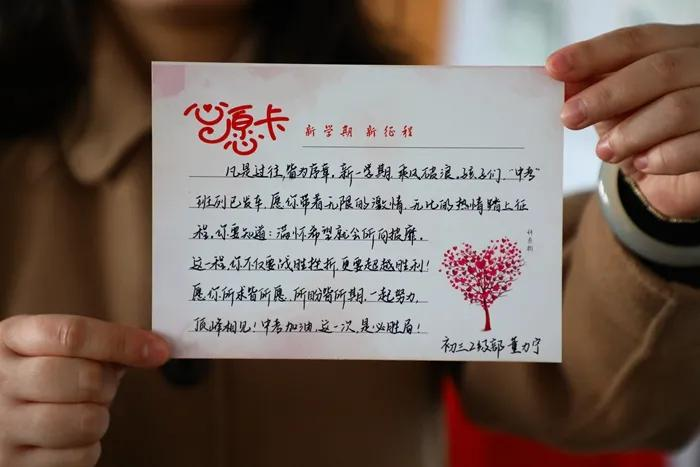 心愿卡
新学期 新征程
凡是过往,皆为序章,新一学期,乘风破浪,孩子们,“中考”
班列已发车,愿你带着无限的激情、无比的热情踏上征
程,你要知道:满怀希望就会所向披靡。
这一程,你不仅要战胜挫折,更要超越胜利!
愿你所求皆所愿,所盼皆所期,一起努力,
顶峰相见!中考加油,这一次,是必胜局!
初三级部 董力宁